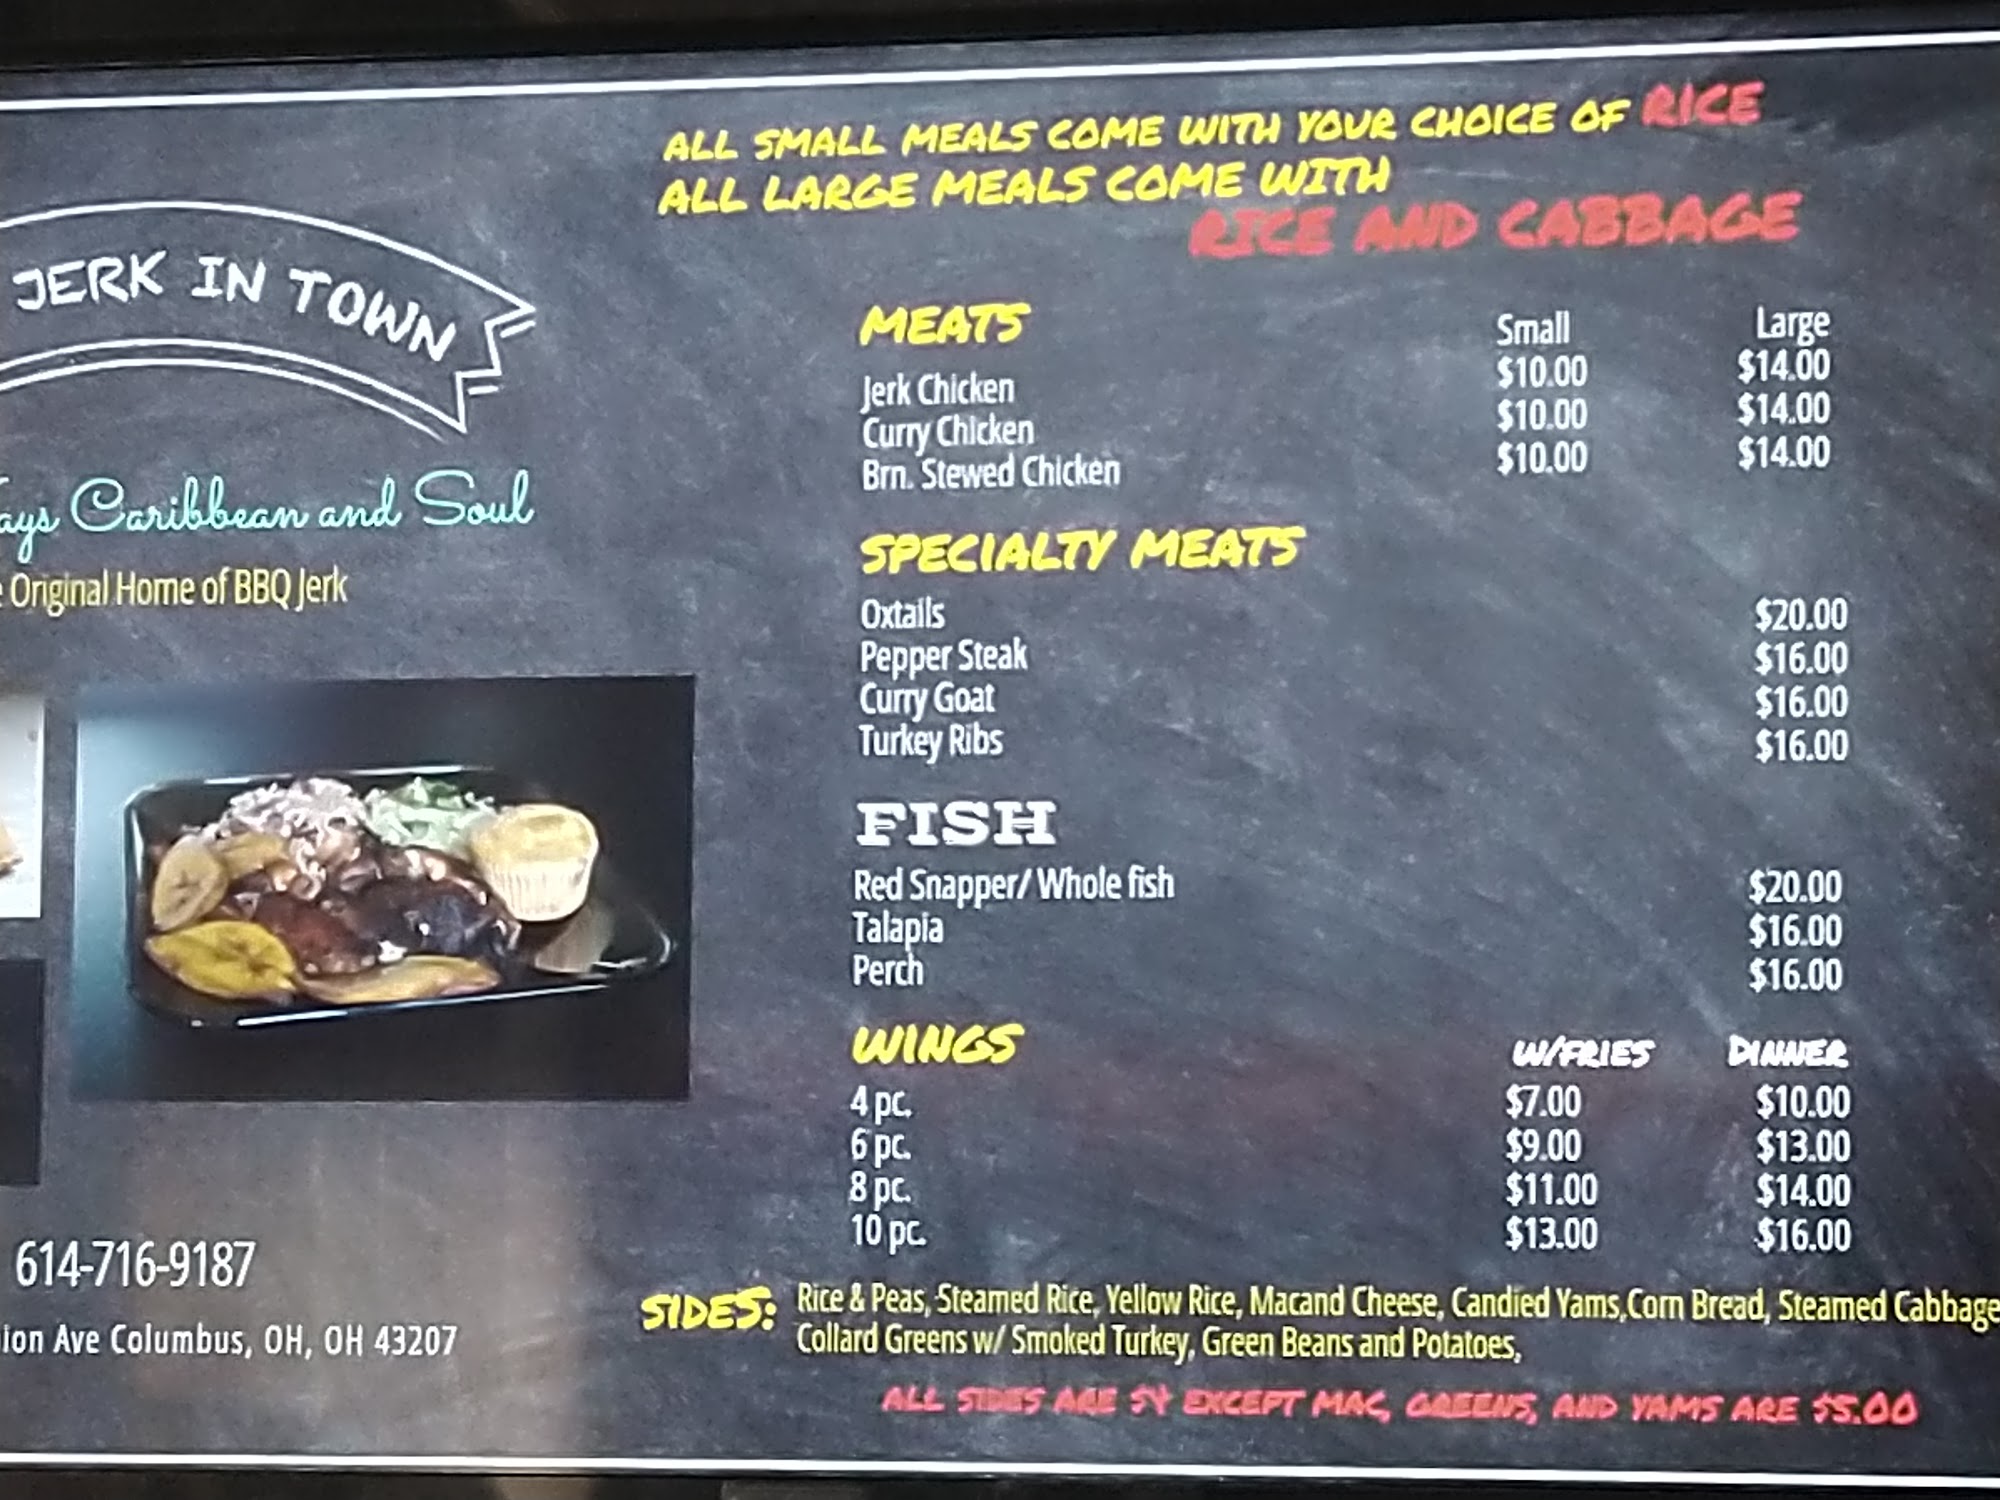 JERK IN TOWN
Caribbean and Soul
Original Home of BBQ Jerk
614-716-9187
Ave Columbus, OH, OH 43207
ALL SMALL MEALS COME WITH YOUR CHOICE OF RICE
ALL LARGE MEALS COME WITH
RICE AND CABBAGE
MEATS Small Large
Jerk Chicken $10.00 $14.00
Curry Chicken $10.00 $14.00
Brn. Stewed Chicken $10.00 $14.00
SPECIALTY MEATS
Oxtails $20.00
Pepper Steak $16.00
Curry Goat $16.00
Turkey Ribs $16.00
FISH
Red Snapper/ Whole fish $20.00
Talapia $16.00
Perch $16.00
WINGS W/FRIES DINNER
4 pc. $7.00 $10.00
6 pc. $9.00 $13.00
8 pc. $11.00 $14.00
10 pc. $13.00 $16.00
SIDES: Rice & Peas, Steamed Rice, Yellow Rice, Macand Cheese, Candied Yams,Corn Bread, Steamed Cabbage
Collard Greens w/ Smoked Turkey, Green Beans and Potatoes,
ALL SIDES ARE $4 EXCEPT MAC, GREENS, AND YAMS ARE $5.00